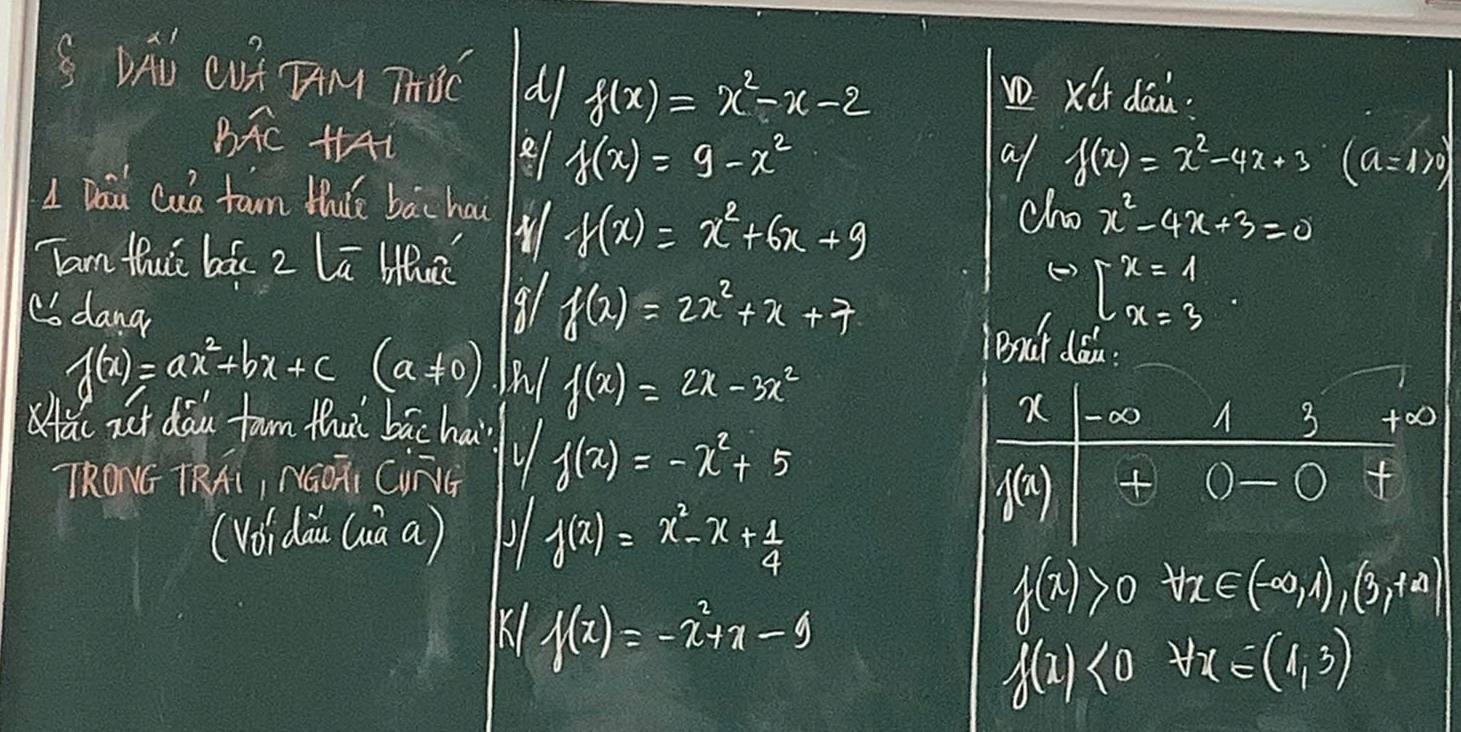 § DẤU CỦA TAM THỨC
BẬC HAI
1 Dấu của tam thức bậc hai
Tam thức bậc 2 là bthức
có dạng
f(x) = ax²+bx+c (a≠0).
xét dấu tam thức bậc hai:
TRONG TRÁI, NGOÀI CÙNG
(với dấu của a)
d/ f(x) = x²-x-2
e/ f(x) = 9-x²
f(x) = x²+6x+9
g/ f(x) = 2x²+x+7
h/ f(x) = 2x-3x²
i/ f(x) = -x²+5
j/ f(x) = x²-x+1/4
k/ f(x) = -x²+x-9
VD Xét dấu:
a/ f(x) = x²-4x+3 (a=1>0)
Cho x²-4x+3=0
⇔ [ x = 1
x = 3
Bxét dấu:
x | -∞ 1 3 +∞
f(x) | + 0 - 0 +
f(x)>0 ∀x∈(-∞,1),(3,+∞)
f(x)<0 ∀x∈(1,3)